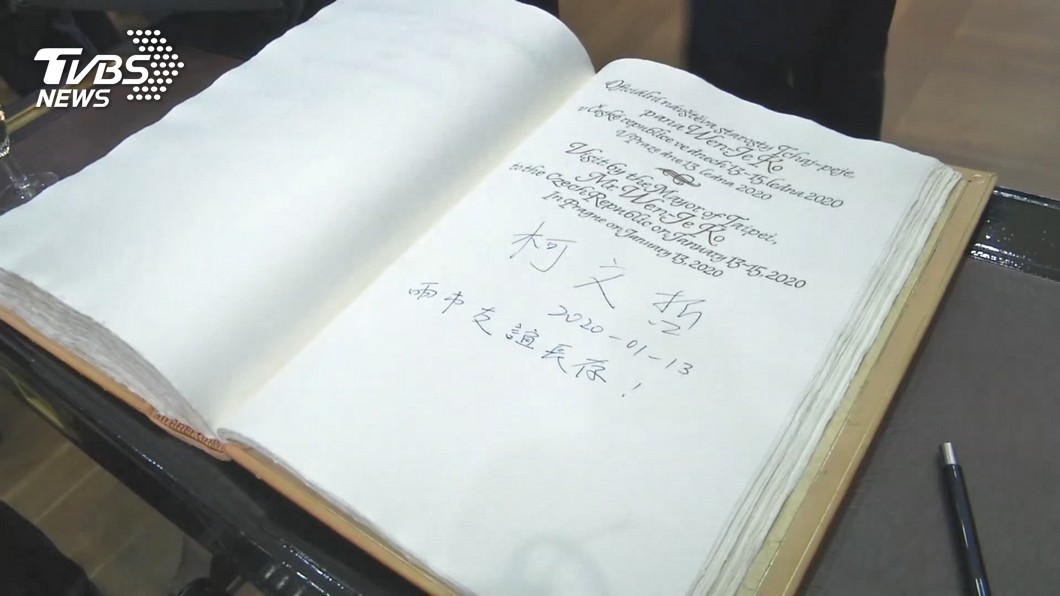 TVBS
NEWS
Oficiální návštěva starosty Tchaj-peje,
pana Wen-Je Ko
v České republice ve dnech 13-15. ledna 2020
V Praze dne 13. ledna 2020
Visit by the Mayor of Taipei,
Mr. Wen-Je Ko
to the Czech Republic on January 13-15, 2020
In Prague on January 13, 2020
柯文哲
2020-01-13
兩市友誼長存!